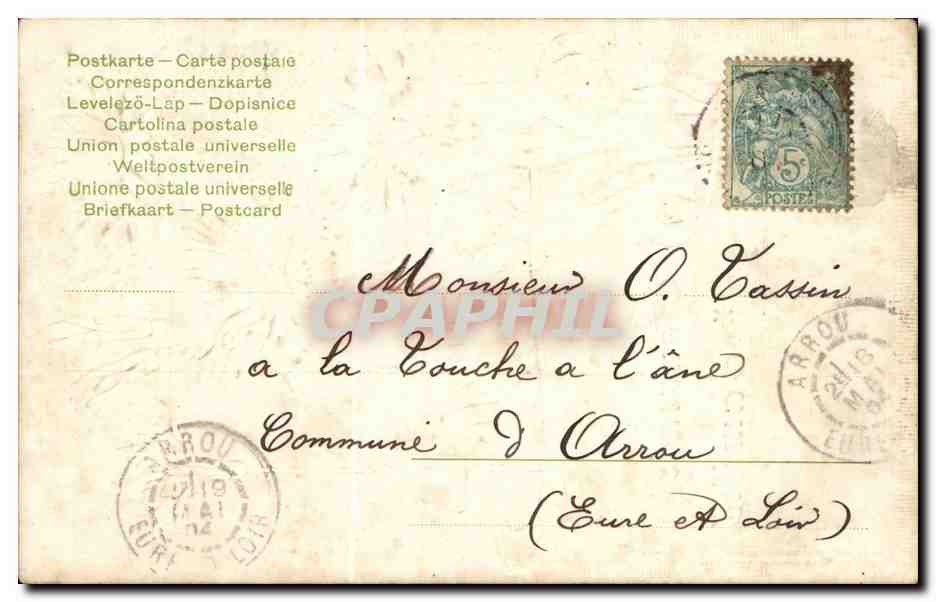 Postkarte — Carte postale
Correspondenzkarte
Levelező-Lap — Dopisnice
Cartolina postale
Union postale universelle
Weltpostverein
Unione postale universelle
Briefkaart — Postcard
5c
POSTES
Monsieur O. Tassin
a la Touche a l'âne
Commune d'Arrou
(Eure et Loir)
CPAPHIL
ARROU
18
MAI
04
EURE
ARROU
19
MAI
04
EURE LOIR